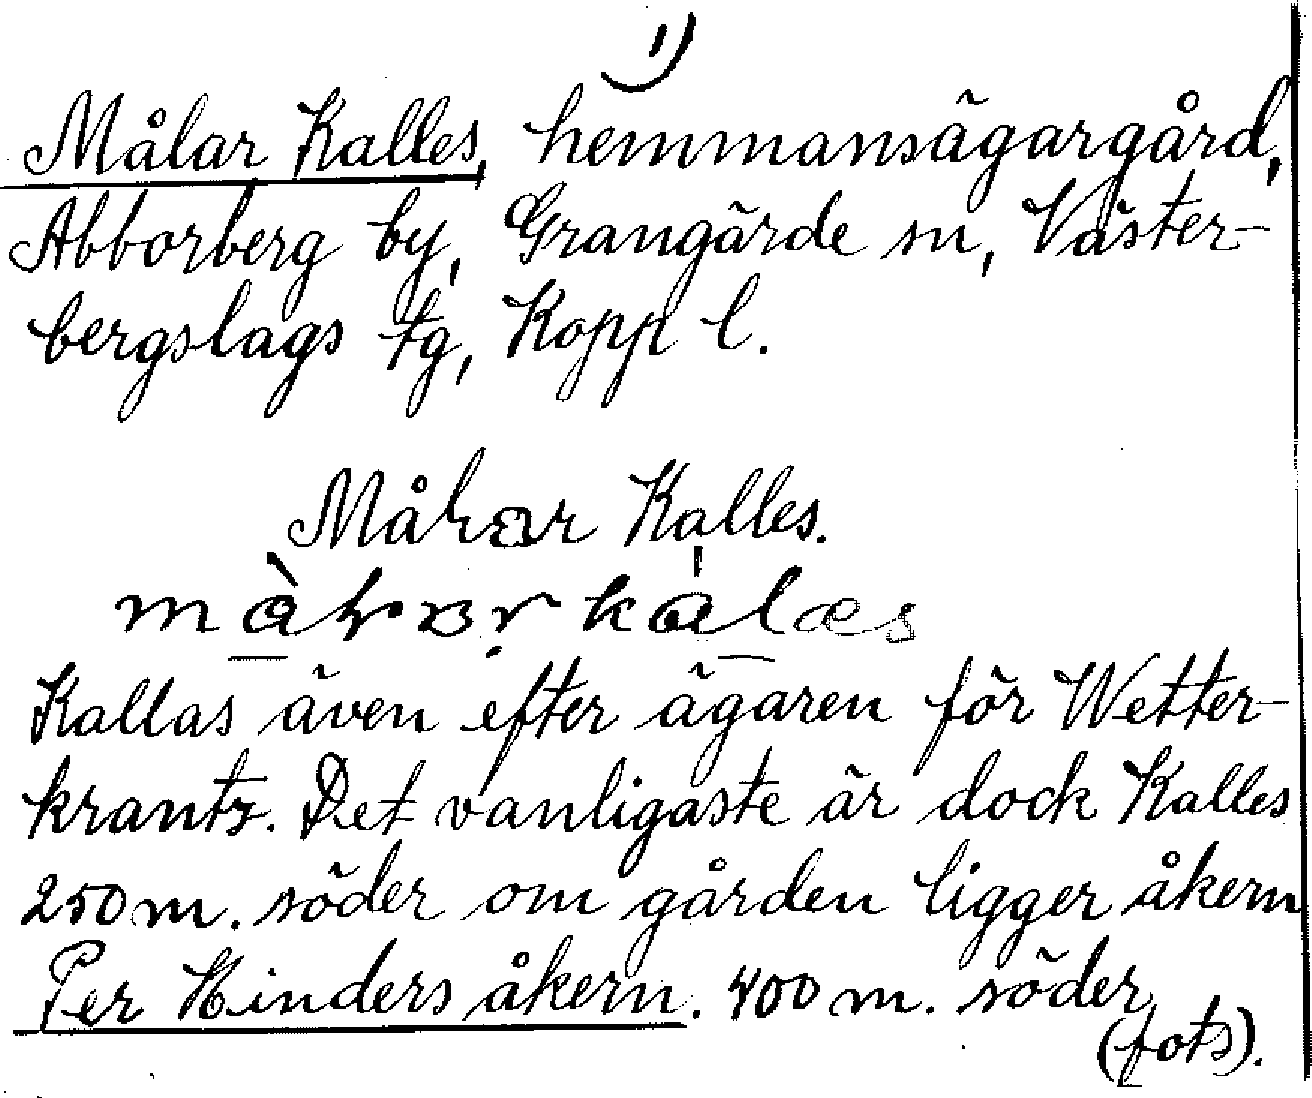 1)
Målar Kalles, hemmansägargård,
Abborberg by, Grangärde sn, Väster-
bergslags tg, Kopp l.
Kalles.
Kallas även efter ägaren för Wetter-
krantz. Det vanligaste är dock Kalles
250 m. söder om gården ligger åkern
Per Hinders åkern. 400 m. söder
(fots).